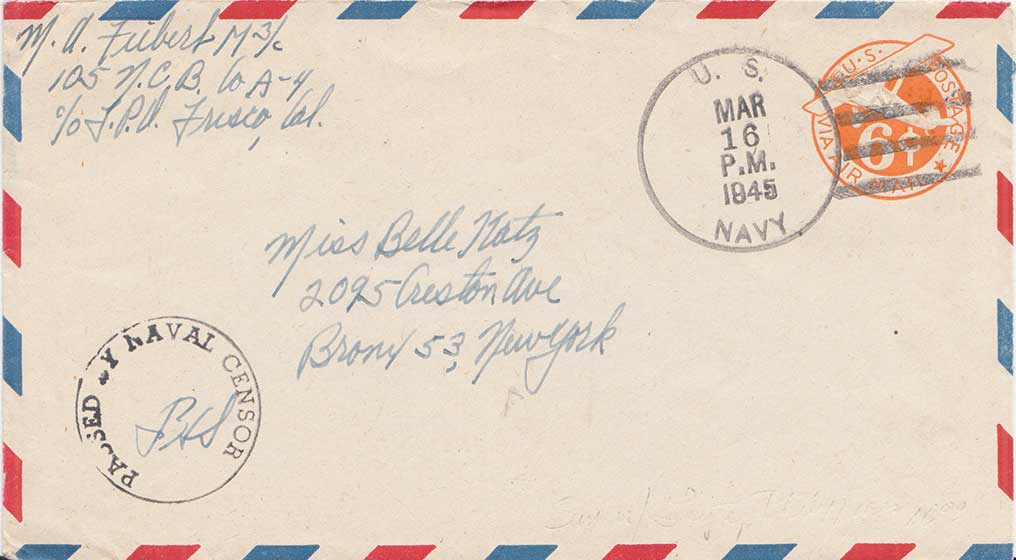 M. A. Fiebert M 3/c
105 N.C.B. Co A-4
c/o F.P.O. Frisco, Cal.
U. S.
MAR
16
P.M.
1945
NAVY
U.S. POSTAGE
6¢
VIA AIR MAIL
Miss Belle Katz
2095 Creston Ave
Bronx 53, New York
PASSED BY NAVAL CENSOR